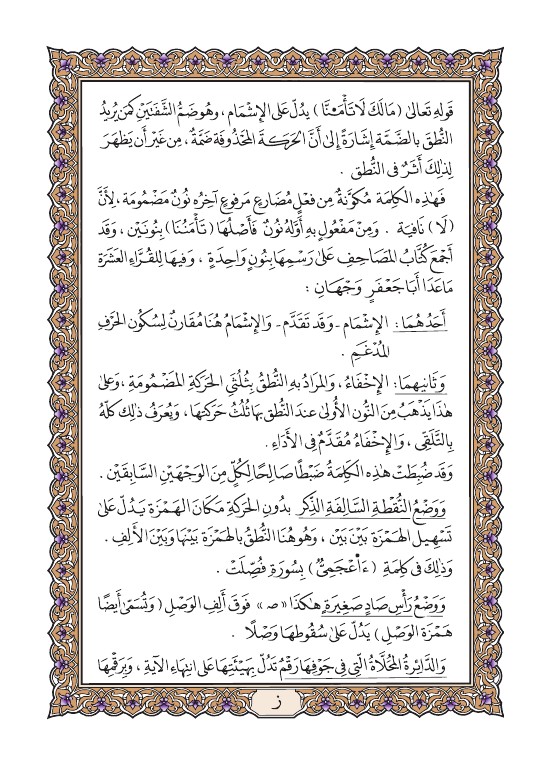 قَولِهِ تَعَالىٰ (مَالَكَ لَا تَأۡمَ۬نَّا) يَدُلّ عَلى الإِشْمَامِ ، وَهُوضَمُّ الشَّفَتَيْنِ كَمَن يُرِيدُ
النُّطْقَ بِالضَّمَّةِ إِشَارَةً إِلىٰ أَنَّ الحَرَكَةَ المَحْذُوفَةَ ضَمَّةٌ ، مِن غَيْرِ أَن يَظْهَرَ
لِذٰلِكَ أَثَرٌ فى النُّطْقِ .
فَهٰذِهِ الكَلِمَة مُكوَّنَةٌ مِن فِعْلٍ مُضَارِعٍ مَرفوعٍ آخِرُهُ نُونٌ مَضْمُومَة ، لِأَنَّ
(لَا) نَافِيَة . وَمِنْ مَفْعُولٍ بِهِ أوَّلُهُ نُونٌ فَأَصْلُهَا (تَأْمَنُنَا) بِنُونَيْنِ ، وَقَد
أجْمَعَ كُتَّابُ المَصَاحِفِ عَلىٰ رَسْمِهَا بِنُونٍ وَاحِدَةٍ ، وَفِيهَا لِلقُرَّاءِ العَشَرَةِ
مَاعَدَا أَبَا جَعْفَرٍ وَجْهَانِ :
أَحَدُهُمَا : الإِشْمَام - وَقَد تَقَدَّم - وَالإِشْمَامُ هُنَا مُقَارِنٌ لِسُكُونِ الحَرْفِ
المُدْغَمِ .
وَثَانِيهِمَا : الإِخْفَاءُ ، وَالمُرَادُ بِهِ النُّطْقُ بِثُلُثَيِ الحَرَكَةِ المَضْمُومَةِ ، وَعَلى
هٰذا يَذْهَبُ مِنَ النّونِ الأُولىٰ عندَ النُّطقِ بِهَا ثُلُثُ حَرَكتِهَا ، وَيُعرَفُ ذٰلِكَ كلّهُ
بِالتَّلَقِّى ، وَالإِخْفَاءُ مُقَدَّمٌ فى الأَدَاءِ .
وَقَد ضُبِطَتْ هٰذِهِ الكَلِمَةُ ضَبْطًا صَالِحًا لِكُلٍّ مِنَ الوَجْهَيْنِ السَّابِقَيْنِ .
وَوَضْعُ النُّقْطَةِ السَّالِفَةِ الذِّكْرِ بدُونِ الحَرَكَةِ مَكَانَ الهَمْزَةِ يَدُلّ عَلىٰ
تَسْهِيلِ الهَمْزَةِ بَيْنَ بَيْنَ ، وَهُوَ هُنَا النُّطْقُ بِالهَمْزَةِ بَيْنَهَا وَبَيْنَ الأَلِفِ .
وَذٰلِكَ فى كَلِمَةِ (ءَا۬عۡجَمِيّٞ) بِسُورَةِ فُصِّلَتْ .
وَوَضْعُ رَأْسِ صَادٍ صَغِيرَةٍ هٰكَذَا «صـ» فَوقَ أَلِفِ الوَصْلِ (وَتُسَمّىٰ أَيضًا
هَمْزَةَ الوَصْلِ) يَدُلّ عَلىٰ سُقُوطِهَا وَصْلًا .
وَالدَّائِرَةُ المُحَلَّاةُ الّتى فى جَوْفِهَا رَقْمٌ تَدُلّ بِهَيْئَتِهَا عَلى انتِهَاءِ الآيَةِ ، وَبِرَقْمِهَا
ز